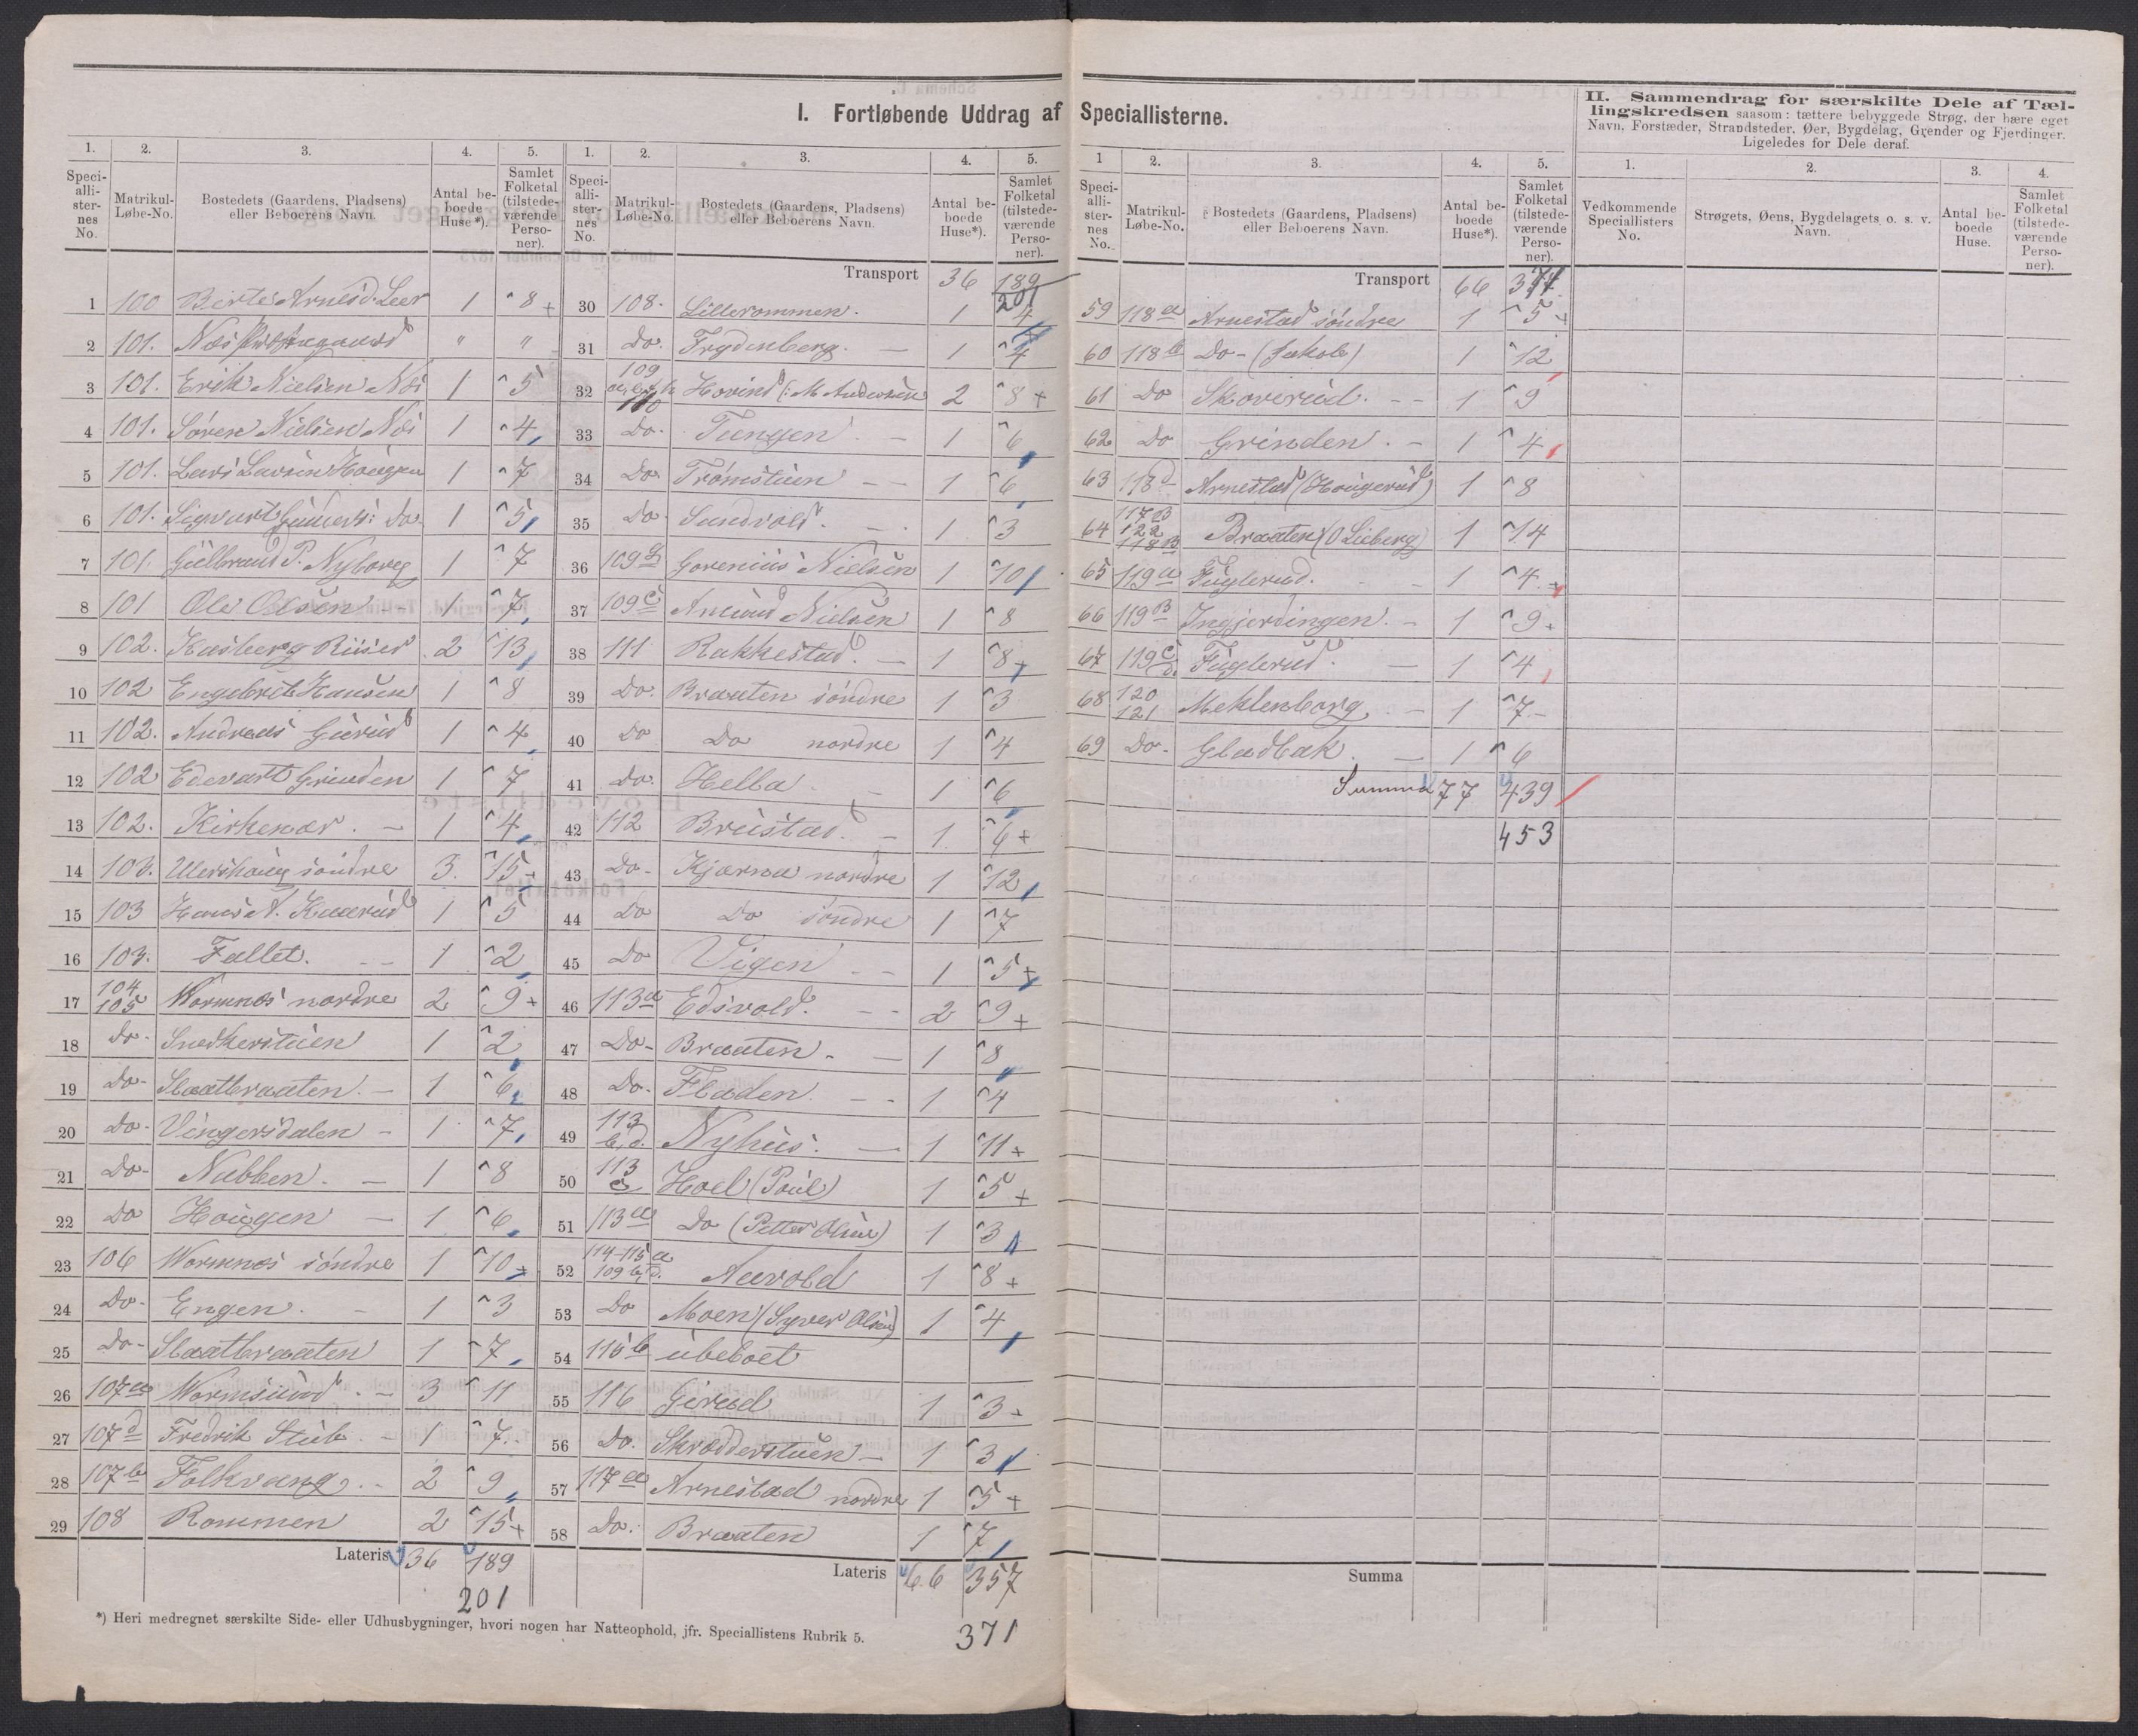 I. Fortløbende Uddrag af Speciallisterne.
II. Sammendrag for særskilte Dele af Tællingskredsen saasom: tættere bebyggede Strøg, der bære eget
Navn, Forstæder, Strandsteder, Øer, Bygdelag, Grender og Fjerdinger.
Ligeledes for Dele deraf.
1. 2. 3. 4. 5.
Speciallisternes No. Matrikul-Løbe-No. Bostedets (Gaardens, Pladsens) eller Beboerens Navn. Antal beboede Huse*). Samlet Folketal (tilstedeværende Personer).
1 100 Birte Arnesd. Leer 1 8 +
2 101. Næs Præstegaard " "
3 101. Erik Nielsen Næs 1 5
4 101. Søren Nielsen Næs 1 4
5 101. Lars Larsen Hougen 1 7
6 101. Sigvart Gunners: Do 1 5
7 101. Gulbrand P. Nyborg 1 7
8 101 Ole Olsen 1 7
9 102. Kasberg Riiser 2 13
10 102 Engebret Hansen 1 8
11 102. Andreas Guriud 1 4
12 102 Edevart Grinden 1 7
13 102. Kirkenær. - 1 4
14 103. Ulershaug søndre 3. 15 +
15 103 Hans A. Kaarud 1 5
16 103. Fallet. - - 1 2
17 104 105 Wormnæs nordre 2 9 +
18 Do. Snedkerstuen 1 2
19 Do- Slaatbraaten. - 1 6
20 Do- Vingersdalen - 1 7
21 Do- Nabben. - 1 8
22 Do Hougen - 1 6
23 106 Wormnæs søndre 1 10 +
24 Do- Engen. - 1 3
25 Do- Slaatbraaten 1 7
26 107a Wormsund. - 3 11
27 107d Fredrik Stub. - 1 7
28 107b Folkvang. - 2 9
29 108 Rommen 2 15 +
Lateris 36 189
201
*) Heri medregnet særskilte Side- eller Udhusbygninger, hvori nogen har Natteophold, jfr. Speciallistens Rubrik 5.
1. 2. 3. 4. 5.
Speciallisternes No. Matrikul-Løbe-No. Bostedets (Gaardens, Pladsens) eller Beboerens Navn. Antal beboede Huse*). Samlet Folketal (tilstedeværende Personer).
Transport 36 189
201
30 108. Lillerommen. 1 4
31 Do. Frydenberg. - 1 4
32 109 110 Hovind (: M Andersen 2 8 +
33 Do. Tangen. - 1 6
34 Do. Trømstuen - - 1 6
35 Do. Sundvold. - 1 3
36 109 Gorenius Nielsen 1 10
37 109c Amund Nielsen 1 8
38 111 Rakkestad. - 1 8 +
39 Do. Braaten søndre 1 3
40 Do Do nordre 1 4
41 Do. Hella. - 1 6
42 112 Brustad. - 1. 6 +
43 Do- Kjærna nordre 1 12
44 Do Do søndre 1 7
45 Do Vigen - - 1 5 +
46 113a Edsvold. - - 2 9 +
47 Do- Braaten. - 1 8
48 Do. Fladen. - - 1 4
49 113 b,d. Nyhus. - 1 11 +
50 113 c Hoel (Poul) 1 5 +
51 113a Do (Petter Olsen) 1 3
52 114-115a 109 b,d. Aarvold 1 8 +
53 Do Moen (Syver Olsen) 1 4
54 115b ubeboet
55 116 Girud 1 3 +
56 Do. Skrædderstuen - 1 3
57 117a Arnestad nordre 1 5 +
58 Do. Braaten 1 7
Lateris 66 357
371
1 2. 3. 4. 5.
Speciallisternes No. Matrikul-Løbe-No. Bostedets (Gaardens, Pladsens) eller Beboerens Navn. Antal beboede Huse*). Samlet Folketal (tilstedeværende Personer).
Transport 66 371
59 118a Arnestad søndre 1 5 +
60 118b Do- (Jakob) 1 12
61 Do Skoverud. - - 1 9
62 Do Grinden. - 1 4
63 118d Arnestad (Hougerud) 1 8
64 117B 122 118B Braaten (O Lieberg) 1 14
65 119a Fuglerud. - 1 4 +
66 119B Ingjerdingen. - 1 9 +
67 119c d. Fuglerud. - 1 4
68 120 121 Meklenborg. - 1 7
69 Do- Gladbak. - 1 6
Summa 77 439
453
Summa
1. 2. 3. 4.
Vedkommende Speciallisters No. Strøgets, Øens, Bygdelagets o. s. v. Navn. Antal beboede Huse. Samlet Folketal (tilstedeværende Personer).